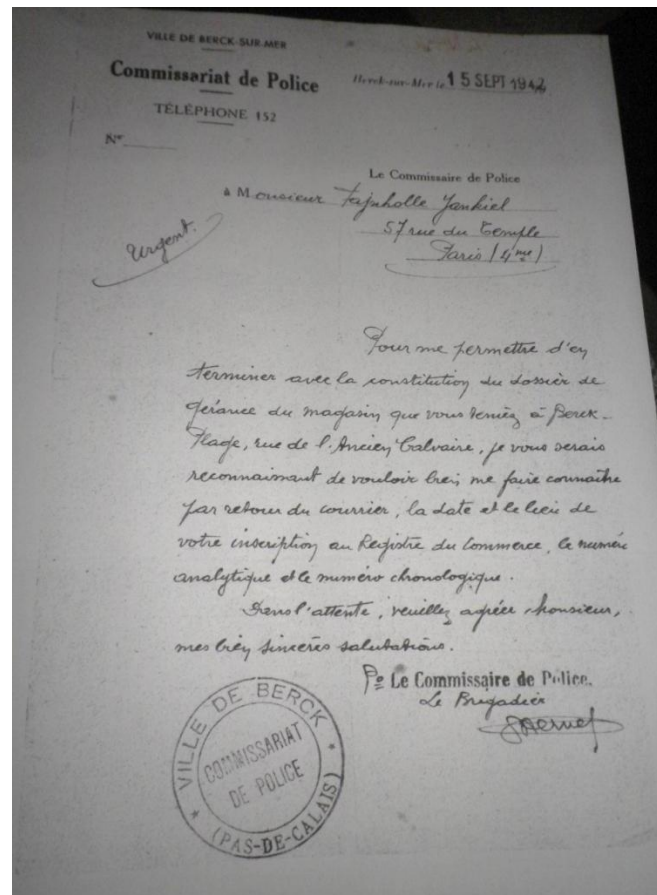 VILLE DE BERCK-SUR-MER
Commissariat de Police
TÉLÉPHONE 152
Berck-sur-Mer le 15 SEPT 1942
N°
Le Commissaire de Police
à Monsieur Fajnholle Yankiel
57 rue du Temple
Paris (4me)
Urgent.
Pour me permettre d'en
terminer avec la constitution du dossier de
gérance du magasin que vous teniez à Berck-
Plage, rue de l'Ancien Calvaire, je vous serais
reconnaissant de vouloir bien me faire connaître
par retour du courrier, la date et le lieu de
votre inscription au Registre du Commerce, le numéro
analytique et le numéro chronologique.
Dans l'attente, veuillez agréer Monsieur,
mes bien sincères salutations.
Po Le Commissaire de Police.
Le Brigadier
VILLE DE BERCK
COMMISSARIAT
DE POLICE
(PAS-DE-CALAIS)